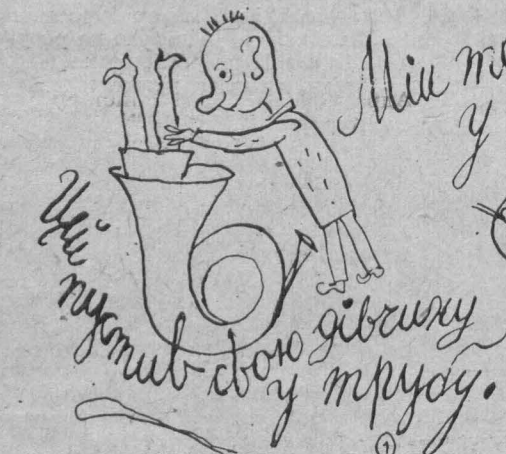 Мій
у
Цей
пустив свою дівчину
у трубу.
1